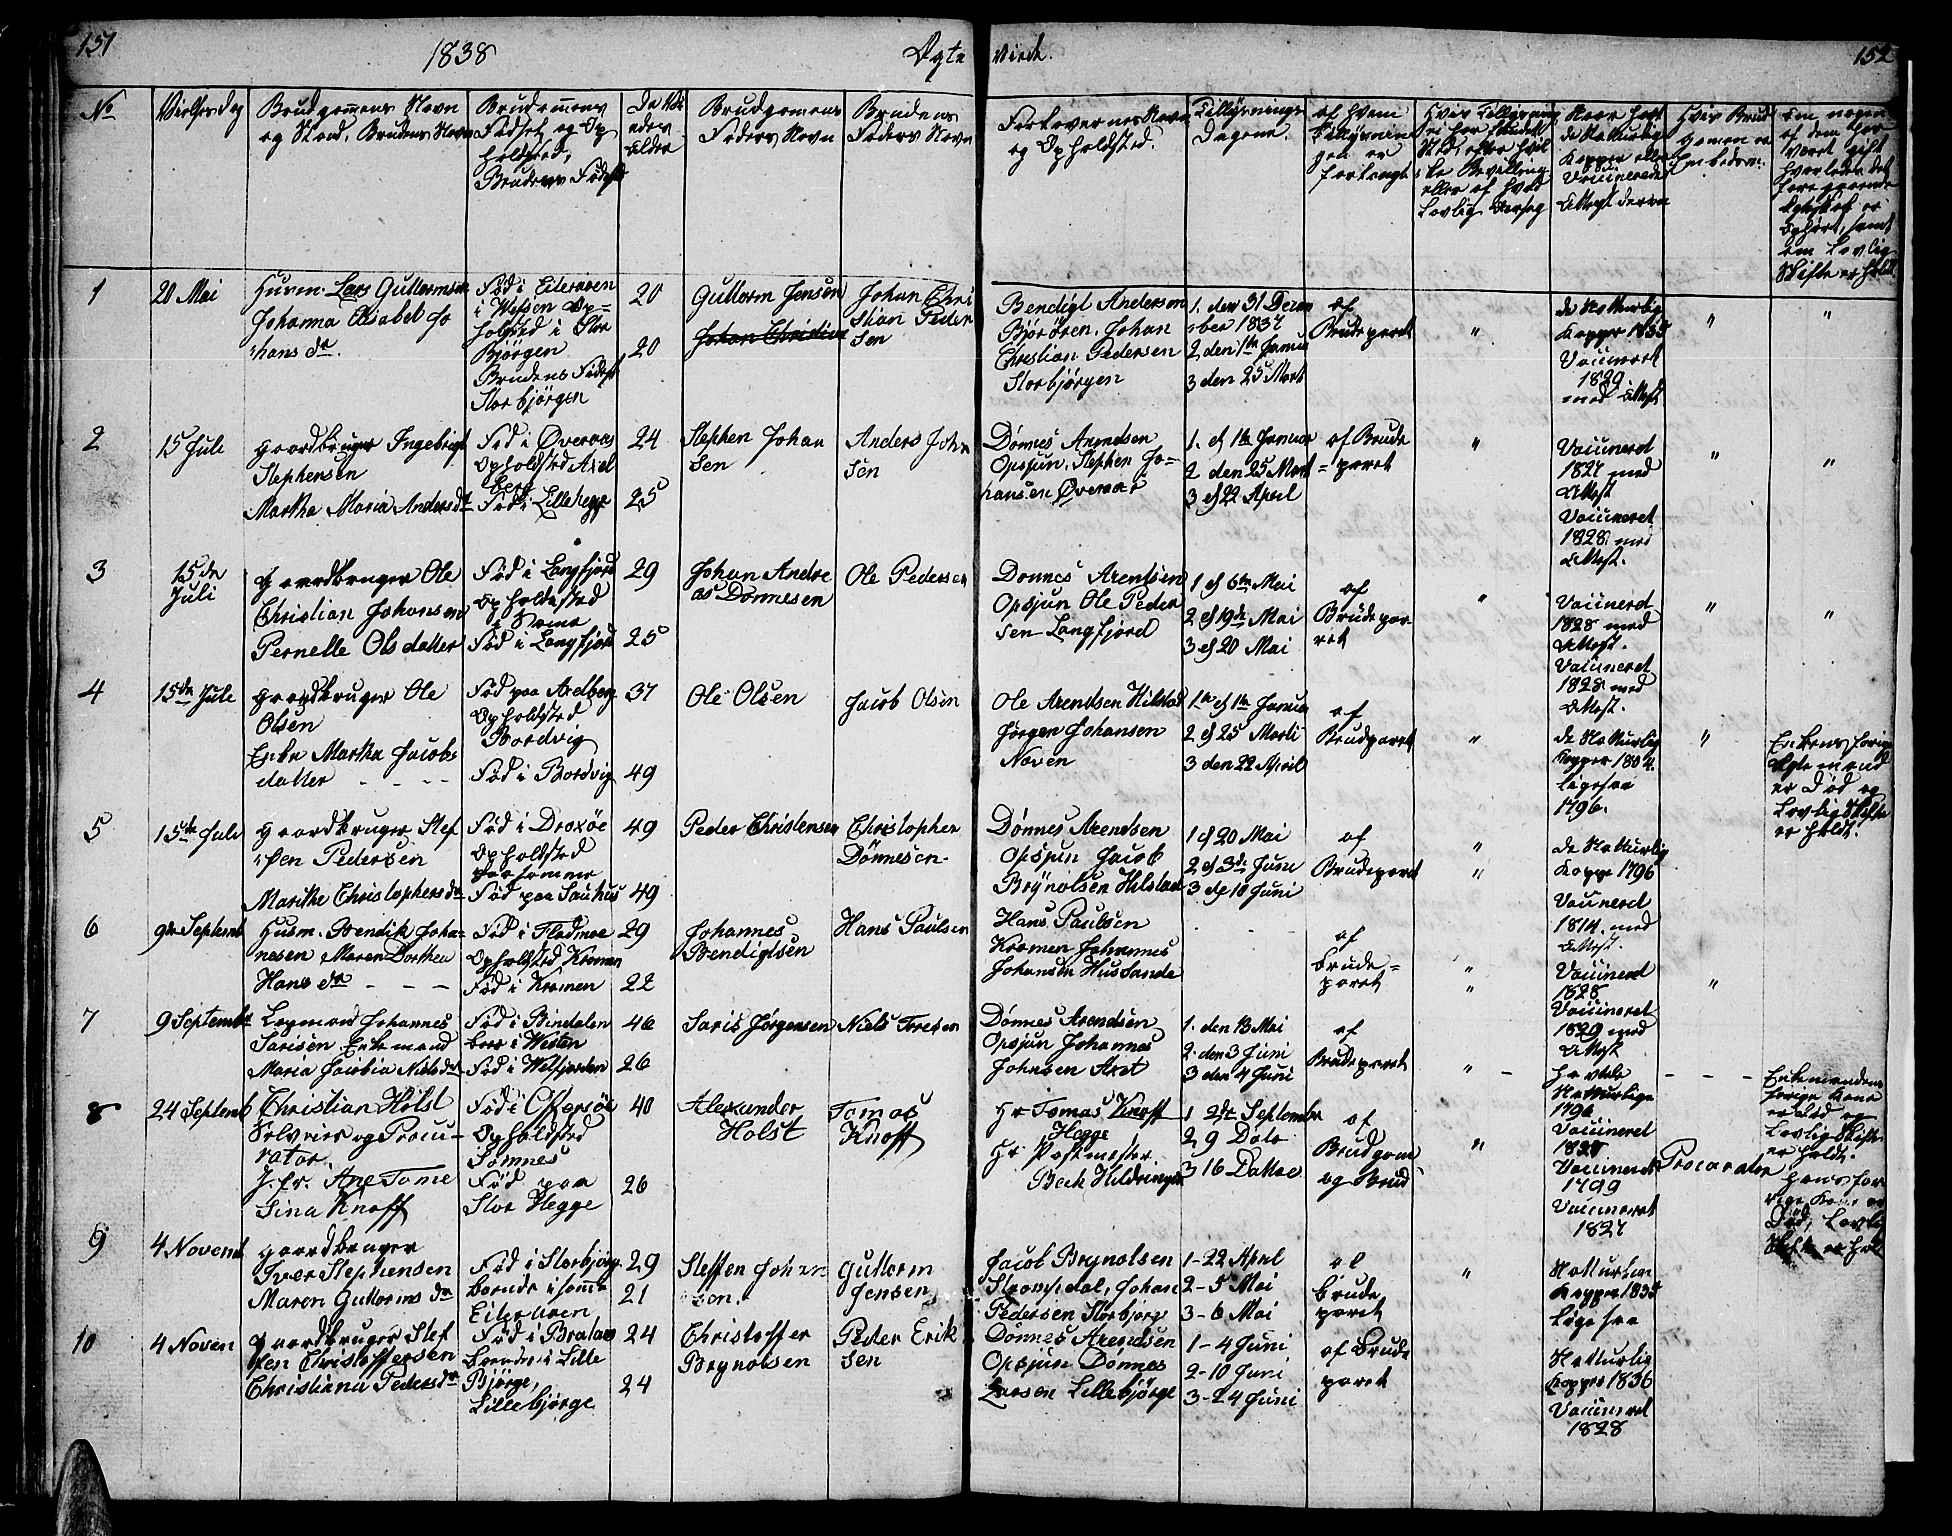 151
1838
Ægte
Viede.
152
No
Vielsesdag
Brudgomens Navn
og Stand, Brudens Navn
Brudgomens
Fødsel og Op
holdsted,
Brudens Fødsel
Alder
Brudgomens
Faders Navn
Brudens
Faders Navn
Forlovernes Navn
og Opholdsted.
Tillysnings
Dagene.
af hvem
Tillysnin
gen er
forlangt
1
20 Mai
Husm. Lars Guttormsen
Johanna Elisabet Jo
hans dr.
Fød i Eiteraaen
i Vefsen Op=
holdsted i Stor
Bjørgen
Brudens Fødest
Storbjørgen
20
20
Guttorm Jensen
Johan Christian
Johan Chri
stian Peder
sen
Bendigt Andersen
Bjørøren. Johan
Christian Pedersen
Storbjørgen
1. den 31 Decem
ber 1837
2 den 1te Janua
3 den 25 Mart
af
Brudeparet
"
de Naturlig
Kopper 1835
Vaccineret
1829
med Attest
"
"
2
15 Jule
Gaardbruger Ingebrigt
Stephensen
Martha Maria Andersdt
Fød i Øveraas
Opholdsted Axel
berg
Fød i Lillehegge
24
25
Stephen Johan
sen
Anders John
sen
Dønnes Arendsen
Opsjun. Stephen Jo=
hansen Øveraas
1. d 1te Januar
2 den 25 Mart
3 d 22 April
af Brude
= paret
"
Vaccineret
1827 med
Attest
Vaccineret
1828 med
Attest.
"
"
3
15de
Juli
Gaardbruger Ole
Christian Johansen
Pernelle Olsdatter
Fød i Langfjord
Opholdssted
i Samme
Fød i Langfjord
29
25
Johan Andre
as Dønnesen
Ole Pedersen
Donnes Arentsen
Opsjun Ole Peder
sen Langfjord
1 d 6te Mai
2 d 19de Mai
3 d 20 Mai
af
Brudepar
ret
"
Vaccineret
1828 med
Attest.
Vaccineret
1828 med
Attest.
"
"
4
15de Jule
Gaardbruger Ole
Olsen
Enke Martha Jacobs
datter - - -
Fød paa Axelberg
Opholdsted
Bordvig
Fød i Bordvig
37
49
Ole Olsen
Jacob Olsen
Ole Arentsen Hilstad
Jørgen Johansen
Noven
1te d 1te Janua
2 d 25 Marti
3 den 22 April
af
Brudparet
"
de Naturlig
Kopper 1804.
Ligesaa
1796.
"
Enkens forige
Ægtemand
er Død og
Lovlig Skifte
er holdt.
5
15de Jule
Gaardbruger Stef
fen Pedersen
Marithe Christophersdr
Fød i Droxøe
Opholdsted
paa samme
Fød paa Sauhus
49
49
Peder Christensen
Christopher
Dønnesen
Dønnes Arendsen
Opsjun Jacob
Brynolsen Hilstad
1 d 20 Mai
2 d 3de Juni
3 d 10 Juni
af
Brudeparet
"
"
de Naturlig
Kopper 1796
Vaccineret
1814. med
Attest.
6
9de Septemb
Husm. Bendik Joha=
nesen Maren Dorthea
Hans dr - - -
Fød i Fladmoe
Opholdsted Kromen
Fød i Kromen
29
22
Johannes
Bendigtsen
Hans Paulsen
Hans Paulsen
Kromen Johannes
Johansen Huslande
af
Brude=
paret
"
"
Vaccineret
1828
Vaccineret
1829 med
Attest
"
7
9 September
Johannes
Sarisen Enkemand
Maria Jacobia Nielsdr
Fød i Bindalen
boer i Vesten
Fød i Velfjorden
46
26
Saris Jørgensen
Niels Tresen
Dønnes Arendsen
Opsjun Johannes
Johnsen Axet
1. den 13 Mai
2. den 3 Juni
3 den 4 Juni
af
Brudeparet
"
havte
Naturlige
1796
Vaccineret
1828
Enkemandens
forige Kone
er død og
Lovlig Skifte
er holdt.
8
24 Septemb
Christian Holst
Selveier og Procu-
rator.
J.fr. Ane Tome
Sina Knoff
Fød i Offersøe
Opholdsted
Sømnes
Fød paa
Stor Hegge
40
26
Alexander
Holst
Tomas
Knoff
Hr Tomas Knoff
Hegge
Hr Postmester
Bech Hildringen
1 2de September
2 9 Dato
3 16 Dattoe
af
Brudgom
og Brud
"
Vaccineret
1799
Vaccineret
1827
Procurator
hans for
rige Kone er
Død, Lovlig
Skifte er holdt
9
4 Novemb
Gaardbruger
Iver Stephensen
Maren Guttorms dr
Fød i Storbjørg
boende i samme
Eiteraaen
29
21
Steffen Johan
sen.
Guttorm
Jensen
Jacob Brynolsen
Strømsdal, Johan
Pedersen Storbjørg
1-22 April
2-5 Mai
3-6 Mai
af
Brude
paret
"
Naturlige
Kopper 1835
Ligesaa
10
4 Novem
Gaardbruger Stef
fen Christoffersen
Christiana Pedersdr
Fød i Brataas
boende i Lille
Bjørge,
Lillebjørge
24
24
Christoffer
Brynolsen
Peder Erik
sen
Dønnes Arendsen
Opsjun Dønnes
Larsen Lillebjørge
1-4 Juni
2-10 Juni
3-24 Juni
af Brude
paret
Naturlig
Kopper 1836
Vaccineret
1828